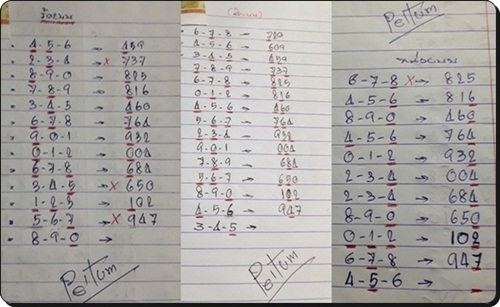 ร้อยบน
4-5-6 → 459
2-3-4 → × 737
8-9-0 → 825
7-8-9 → 816
3-4-5 → 460
6-7-8 → 764
9-0-1 → 932
0-1-2 → 004
6-7-8 → 684
3-4-5 → × 650
1-2-5 → 102
5-6-7 → × 947
8-9-0 →
Peitum
(สิบบน)
6-7-8 → 720
4-5-6 → 609
3-4-5 → 459
7-8-9 → 737
6-7-8 → 825
0-1-2 → 816
4-5-6 → 460
5-6-7 → 764
2-3-4 → 932
9-0-1 → 004
7-8-9 → 684
5-6-7 → 650
8-9-0 → 102
4-5-6 → 947
3-4-5 →
Peitum
Peitum
หน่วยบน
6-7-8 × → 825
4-5-6 → 816
8-9-0 → 460
4-5-6 → 764
0-1-2 → 932
2-3-4 → 004
2-3-4 → 684
8-9-0 → 650
0-1-2 → 102
6-7-8 → 947
4-5-6 →